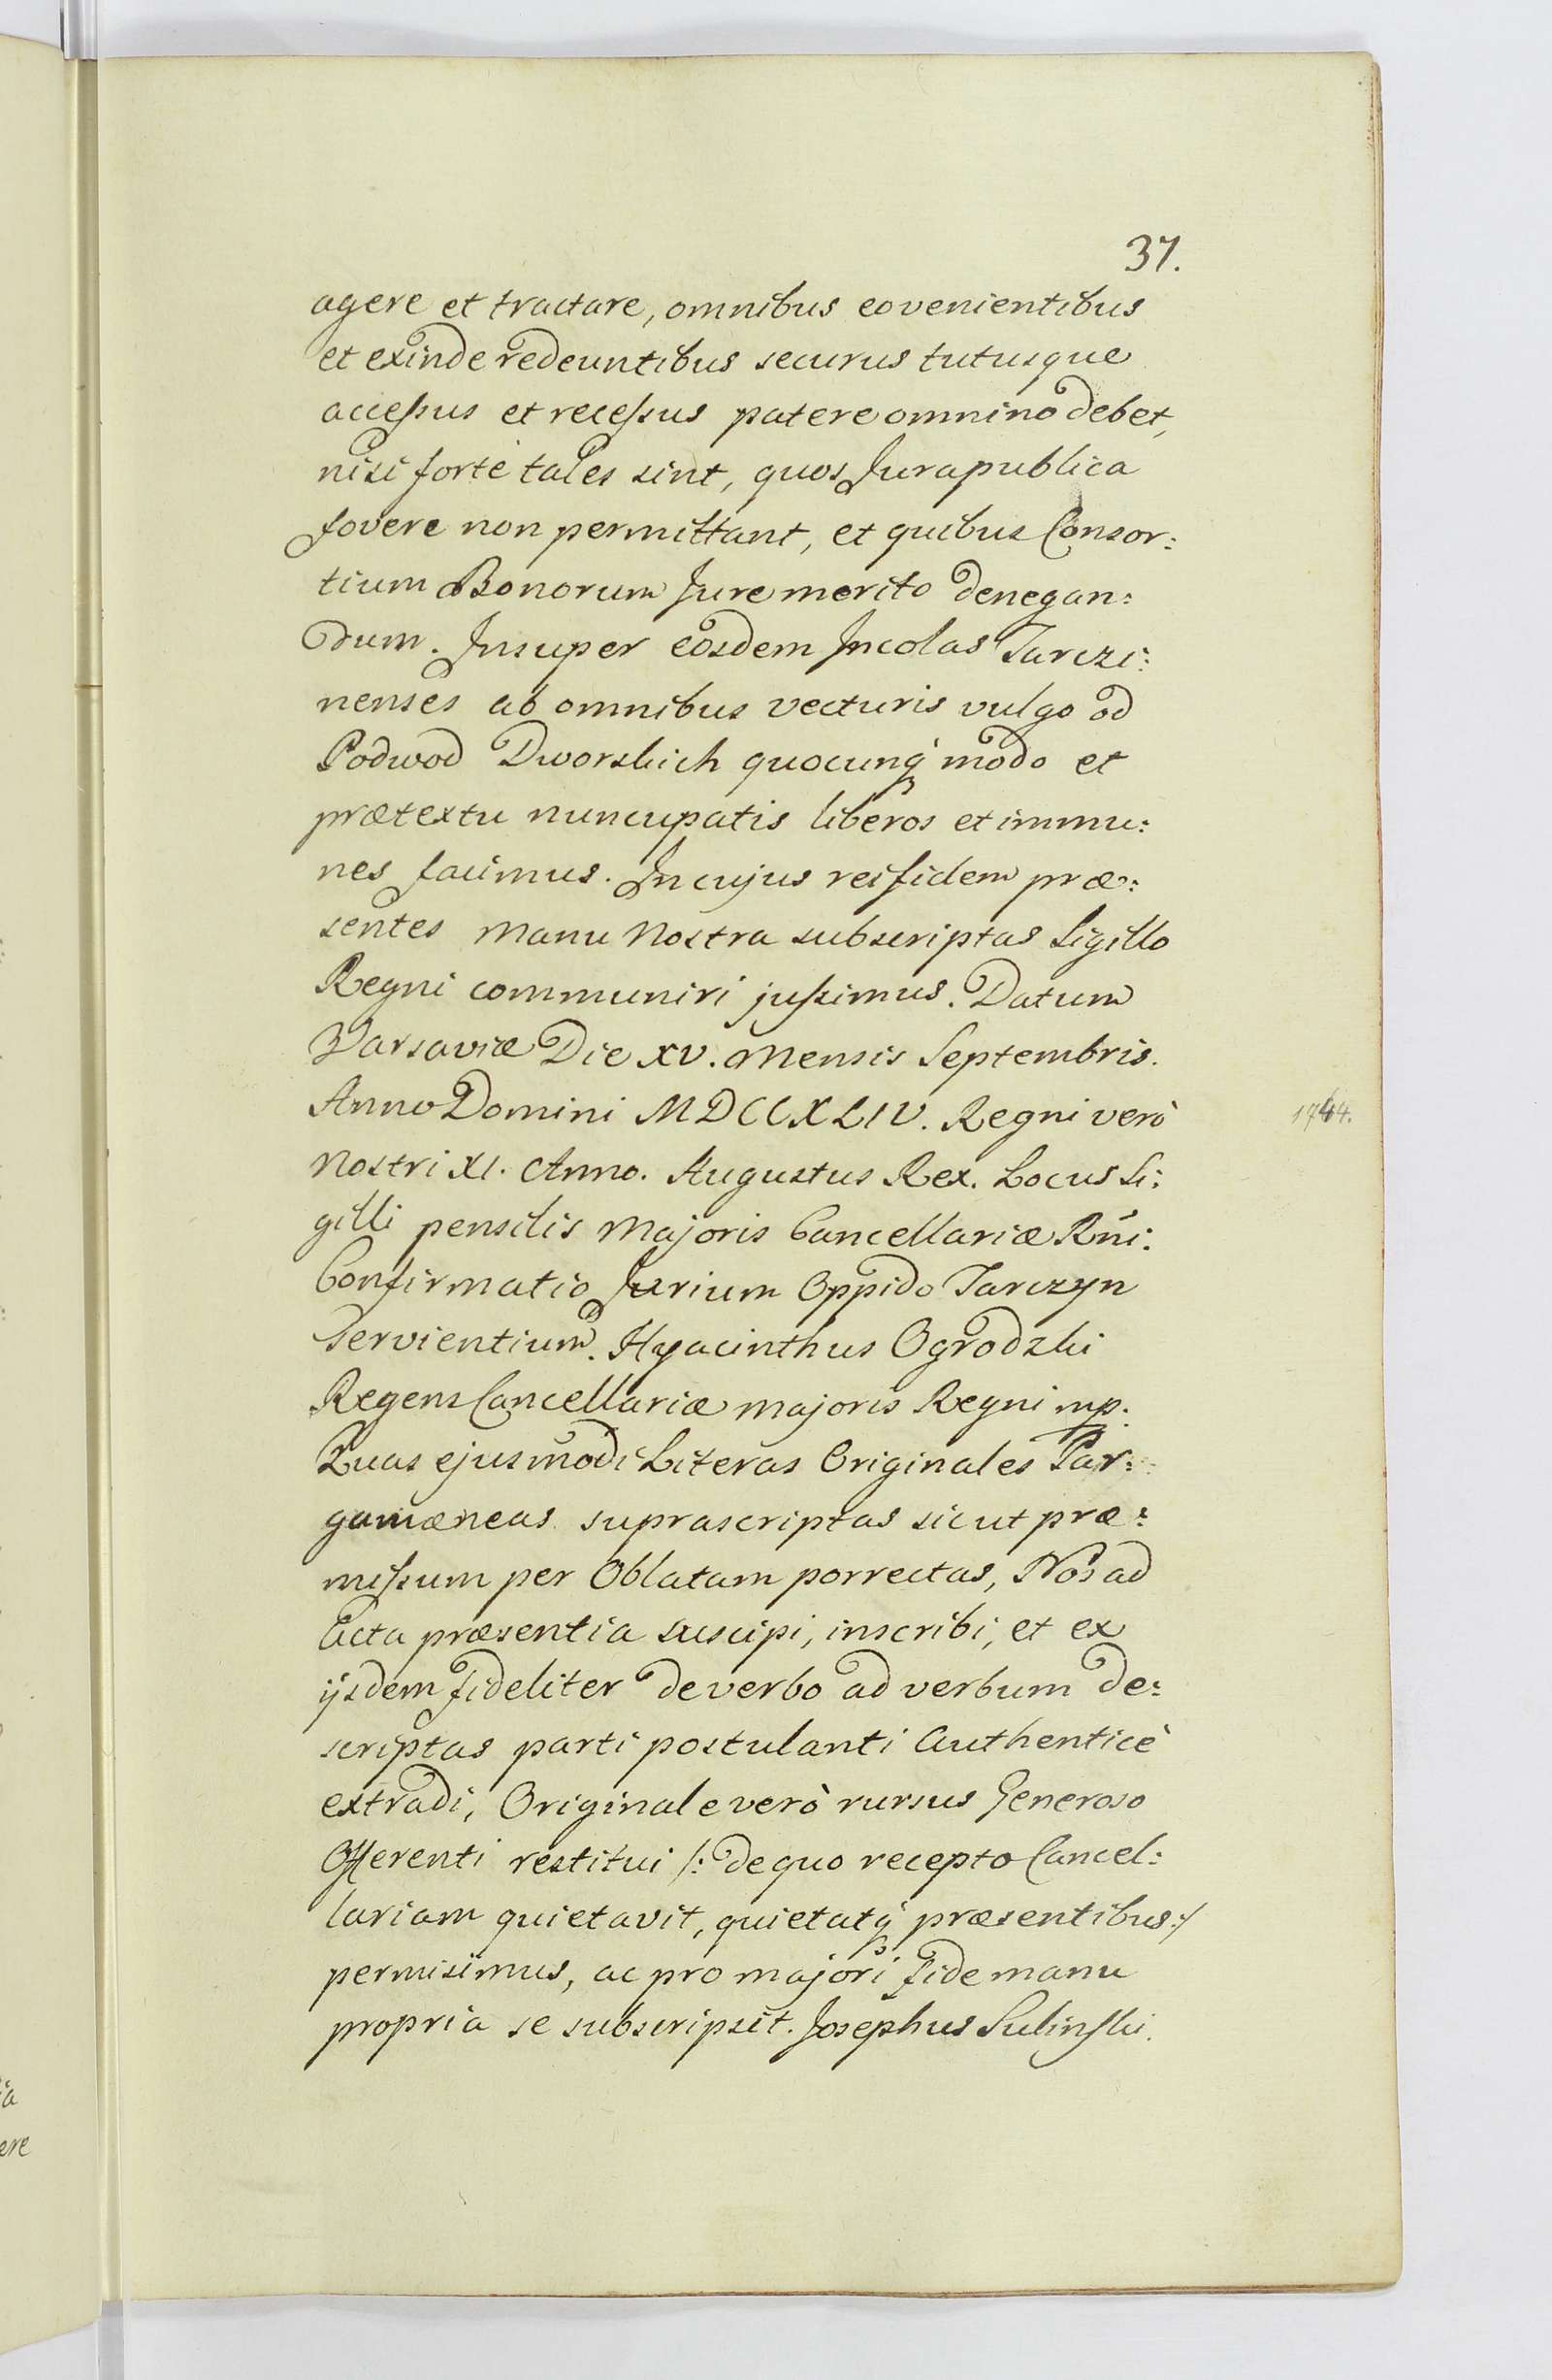 37.
agere et tractare, omnibus eo venientibus
et exinde redeuntibus securus tutusque
accessus et recessus patere omnino debet,
nisi fortè tales sint, quos Jura publica
fovere non permittant, et quibus Consor:
tium Bonorum Jure merito denegan:
dum. Insuper eosdem Incolas Tarczi:
nenses ab omnibus vecturis vulgo od
Podwod Dworskich quocunq́ modo et
prætextu nuncupatis liberos et immu:
nes facimus. In cujus rei fidem præ:
sentes manu Nostra subscriptas Sigillo
Regni communiri jussimus. Datum
Varsaviæ Die XV. Mensis Septembris.
Anno Domini MDCCXLIV. Regni verò
1744.
Nostri XI. Anno. Augustus Rex. Locus Si:
gilli pensilis Majoris Cancellariæ Rñi.
Confirmatio Jurium Oppido Tarczyn
Servientium. Hyacinthus Ogrodzki
Regens Cancellariæ majoris Regni mp.
Quas ejusmodi Literas Originales Par:
gamæneas suprascriptas sicut præ:
missum per Oblatam porrectas, Nos ad
Acta præsentia suscipi, inscribi, et ex
ijsdem fideliter de verbo ad verbum de:
scriptas parti postulanti Authenticè
extradi, Originale verò rursus Generoso
Offerenti restitui /: de quo recepto Cancel:
lariam quietavit, quietatq́ præsentibus :/
permisimus, ac pro majori fide manu
propria se subscripsit. Josephus Sulinski.
ia
ere